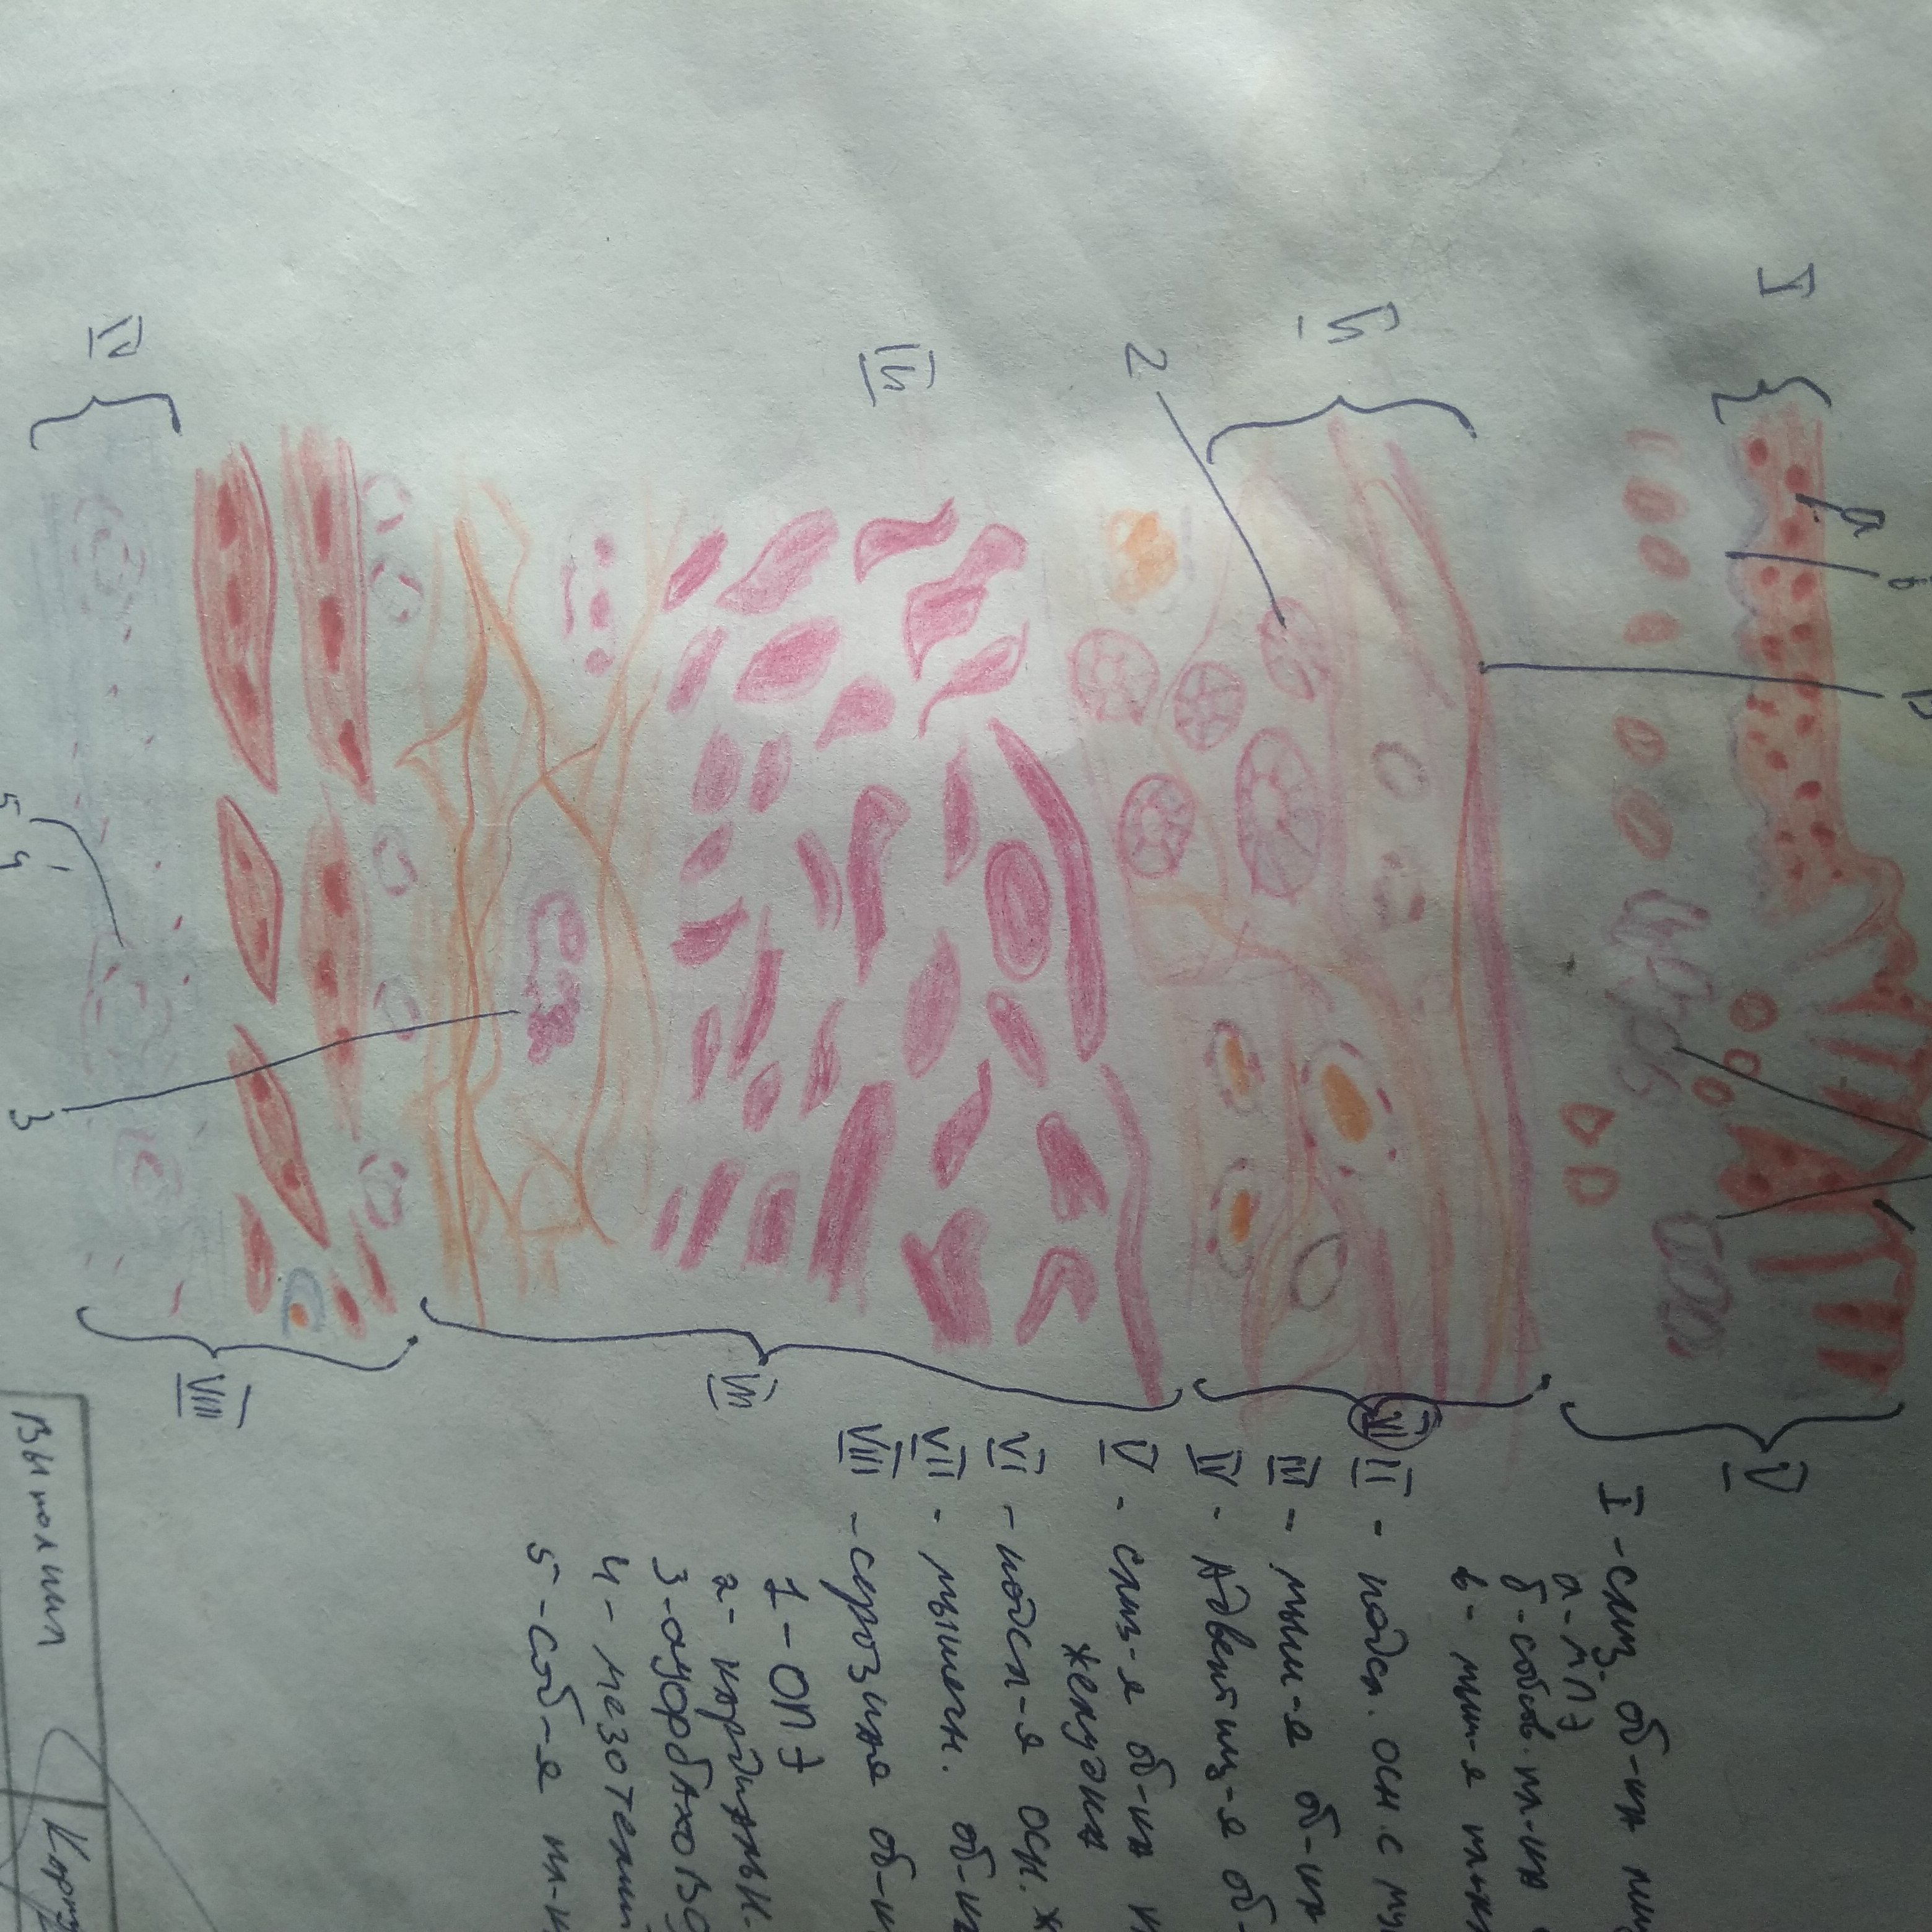 I
II
2
III
IV
а
б
в
5
4
3
V
VI
VII
VIII
I - слиз. об-ка
а - МПЭ
б - собств. пл-ка
в - мыш-я
II - подсл. осн. с
III - мыш-я об-ка
IV - Адвентиц-я об-
V - слиз-я об-ка
желудка
VI - подсл-я осн. ж
VII - мышечн. об-ка
VIII - серозная об-к
1 - ОПЭ
2 - кардиальн.
3 - ауэрбахов
4 - мезотелий
5 - соб-я пл-к
Выполнил